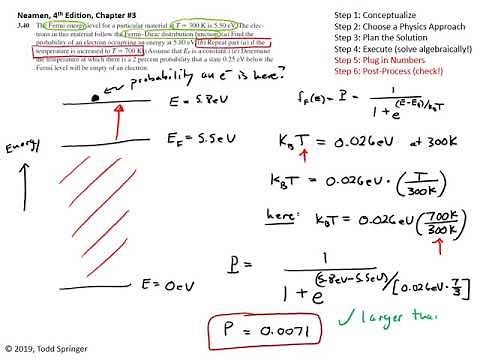 Neamen, 4th Edition, Chapter #3
3.40 The Fermi energy level for a particular material at T = 300 K is 5.50 eV. The elec-
trons in this material follow the Fermi–Dirac distribution function. (a) Find the
probability of an electron occupying an energy at 5.80 eV. (b) Repeat part (a) if the
temperature is increased to T = 700 K. (Assume that EF is a constant.) (c) Determine
the temperature at which there is a 2 percent probability that a state 0.25 eV below the
Fermi level will be empty of an electron.
Step 1: Conceptualize
Step 2: Choose a Physics Approach
Step 3: Plan the Solution
Step 4: Execute (solve algebraically!)
Step 5: Plug in Numbers
Step 6: Post-Process (check!)
probability an e- is here?
E = 5.8eV
Energy
EF = 5.5eV
E = 0eV
fF(E) = P = 1 / 1 + e^(E-EF)/kBT
KBT = 0.026eV at 300K
KBT = 0.026eV · (T/300K)
here: KBT = 0.026eV (700K/300K)
P = 1 / 1 + e^(5.8eV-5.5eV)/[0.026eV·7/3]
P = 0.0071
✓ larger tha
© 2019, Todd Springer